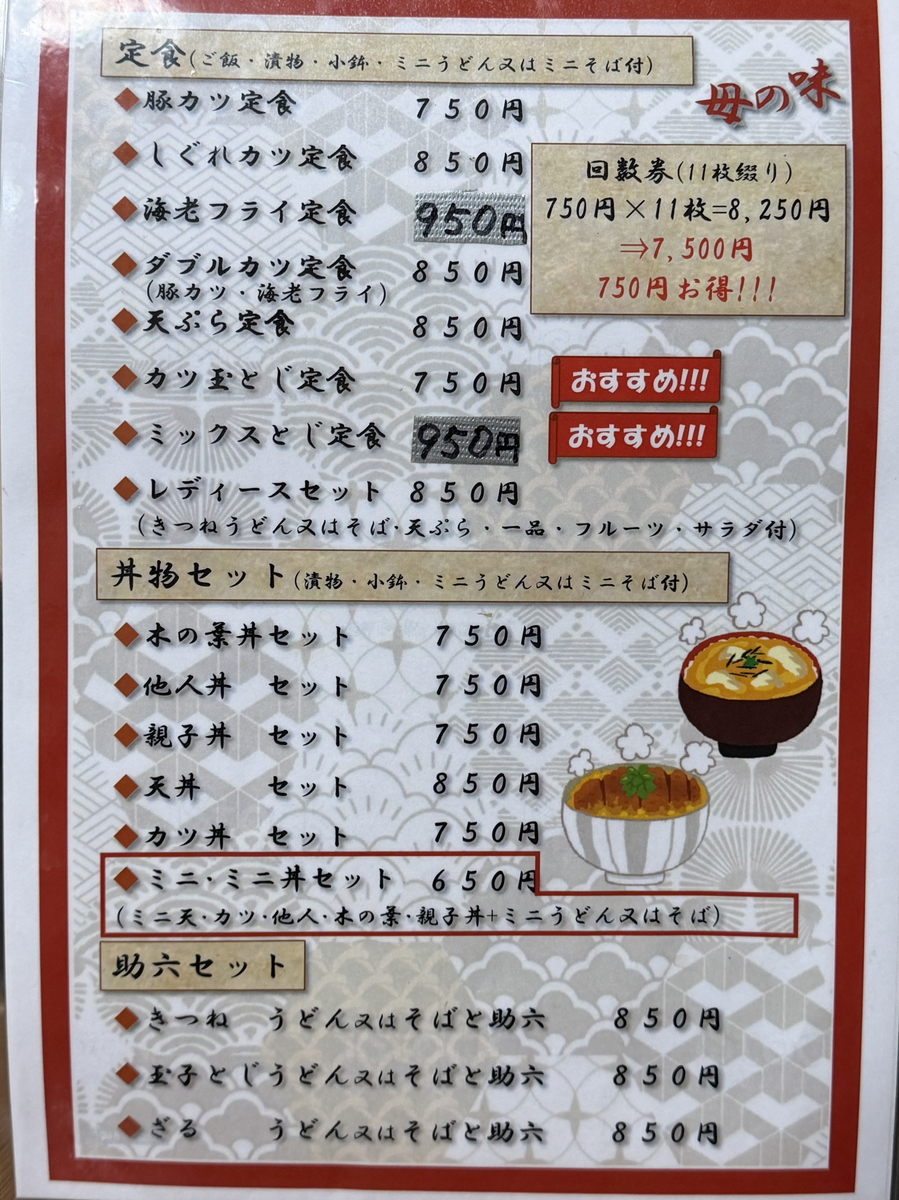 定食(ご飯・漬物・小鉢・ミニうどん又はミニそば付)
母の味
◆豚カツ定食 750円
◆しぐれカツ定食 850円
◆海老フライ定食 950円
◆ダブルカツ定食 850円
(豚カツ・海老フライ)
◆天ぷら定食 850円
◆カツ玉とじ定食 750円 おすすめ!!!
◆ミックスとじ定食 950円 おすすめ!!!
◆レディースセット 850円
(きつねうどん又はそば・天ぷら・一品・フルーツ・サラダ付)
回数券(11枚綴り)
750円×11枚=8,250円
⇒7,500円
750円お得!!!
丼物セット(漬物・小鉢・ミニうどん又はミニそば付)
◆木の葉丼セット 750円
◆他人丼 セット 750円
◆親子丼 セット 750円
◆天丼 セット 850円
◆カツ丼 セット 750円
◆ミニ・ミニ丼セット 650円
(ミニ天・カツ・他人・木の葉・親子丼+ミニうどん又はそば)
助六セット
◆きつね うどん又はそばと助六 850円
◆玉子とじうどん又はそばと助六 850円
◆ざる うどん又はそばと助六 850円